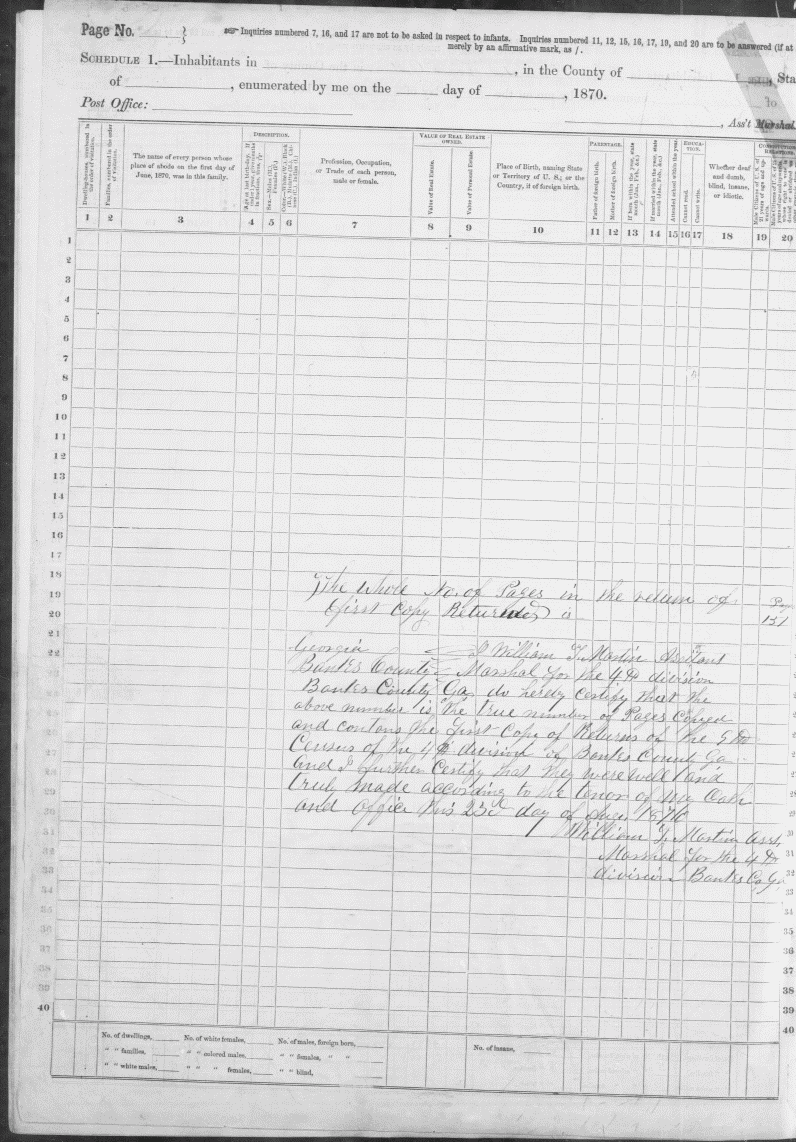 Page No.
☞ Inquiries numbered 7, 16, and 17 are not to be asked in respect to infants. Inquiries numbered 11, 12, 15, 16, 17, 19, and 20 are to be answered (if at
merely by an affirmative mark, as /.
SCHEDULE 1.—Inhabitants in , in the County of , Sta
of , enumerated by me on the day of , 1870.
Post Office:
, Ass't Marshal.
DESCRIPTION.
VALUE OF REAL ESTATE OWNED.
PARENTAGE.
EDUCATION.
Dwelling-houses, numbered in the order of visitation.
Families, numbered in the order of visitation.
The name of every person whose place of abode on the first day of June, 1870, was in this family.
Profession, Occupation, or Trade of each person, male or female.
Value of Real Estate.
Value of Personal Estate.
Place of Birth, naming State or Territory of U. S.; or the Country, if of foreign birth.
Father of foreign birth.
Mother of foreign birth.
If born within the year, state month (Jan., Feb., &c.)
If married within the year, state month (Jan., Feb., &c.)
Attended school within the year.
Cannot read.
Cannot write.
Whether deaf and dumb, blind, insane, or idiotic.
1 2 3 4 5 6 7 8 9 10 11 12 13 14 15 16 17 18 19 20
1
2
3
4
5
6
7
8
9
10
11
12
13
14
15
16
17
18
19 The whole No. of Pages in the return of Pages
20 first Copy Returned is 151
21
22 Georgia I William T. Martin Assitant
Banks County Marshal for the 4th division
Banks County Ga do hereby certify that the
above number is the true number of Pages Copyed
and contans the First Copy of Returns of the 9th
Census of the 4th division of Banks County Ga
and I further Certify that they were well and
truly made according to the tenor of my Oath
and office this 23d day of 1870
William T. Martin Asst.
Marshal for the 4th
division Banks Co. Ga
40
No. of dwellings, No. of white females, No. of males, foreign born, No. of insane,
" " families, " " colored males, " " females, " "
" " white males, " " " females, " " blind,